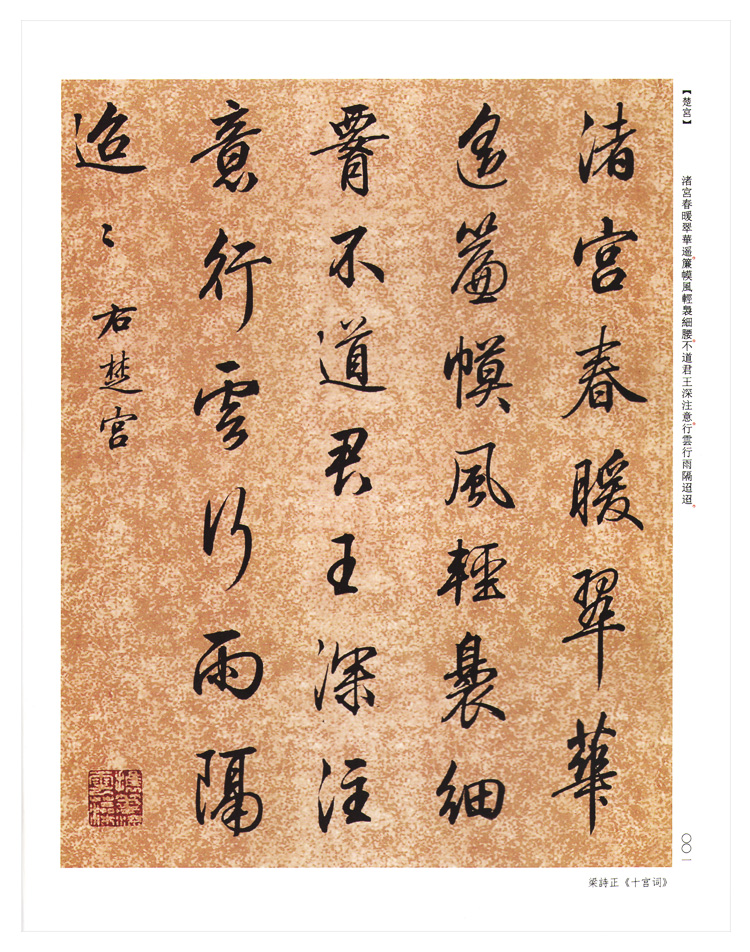 【楚宮】 渚宮春暖翠華遥。簾幙風輕裊細腰。不道君王深注意。行雲行雨隔迢迢。
渚宮春暖翠華
遥簾幙風輕裊細
腰不道君王深注
意行雲行雨隔
迢〻 右楚宮
〇〇一
梁詩正《十宮词》